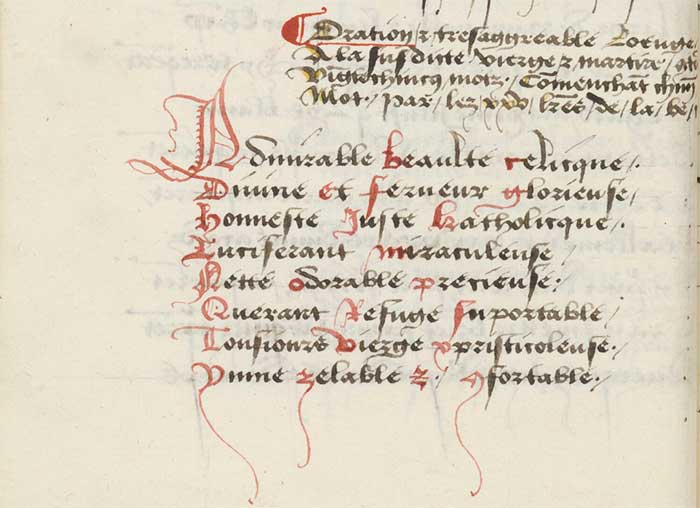 Oration & tresaggreable Loenge
A la susdicte vierge & martire
Vingtechincq motz. Comenchāt chūn
Mot. par lez xxv. lrēs. de. la. be
Admirable beaulte celicque.
Divine et ferueur glorieuse
Honneste Juste katholicque.
Luciferant miraculeuse
Nette odorable precieuse.
Querant Refuge suportable
Tousiours vierge xpristicoleuse.
Ymne zelable &. 9fortable.